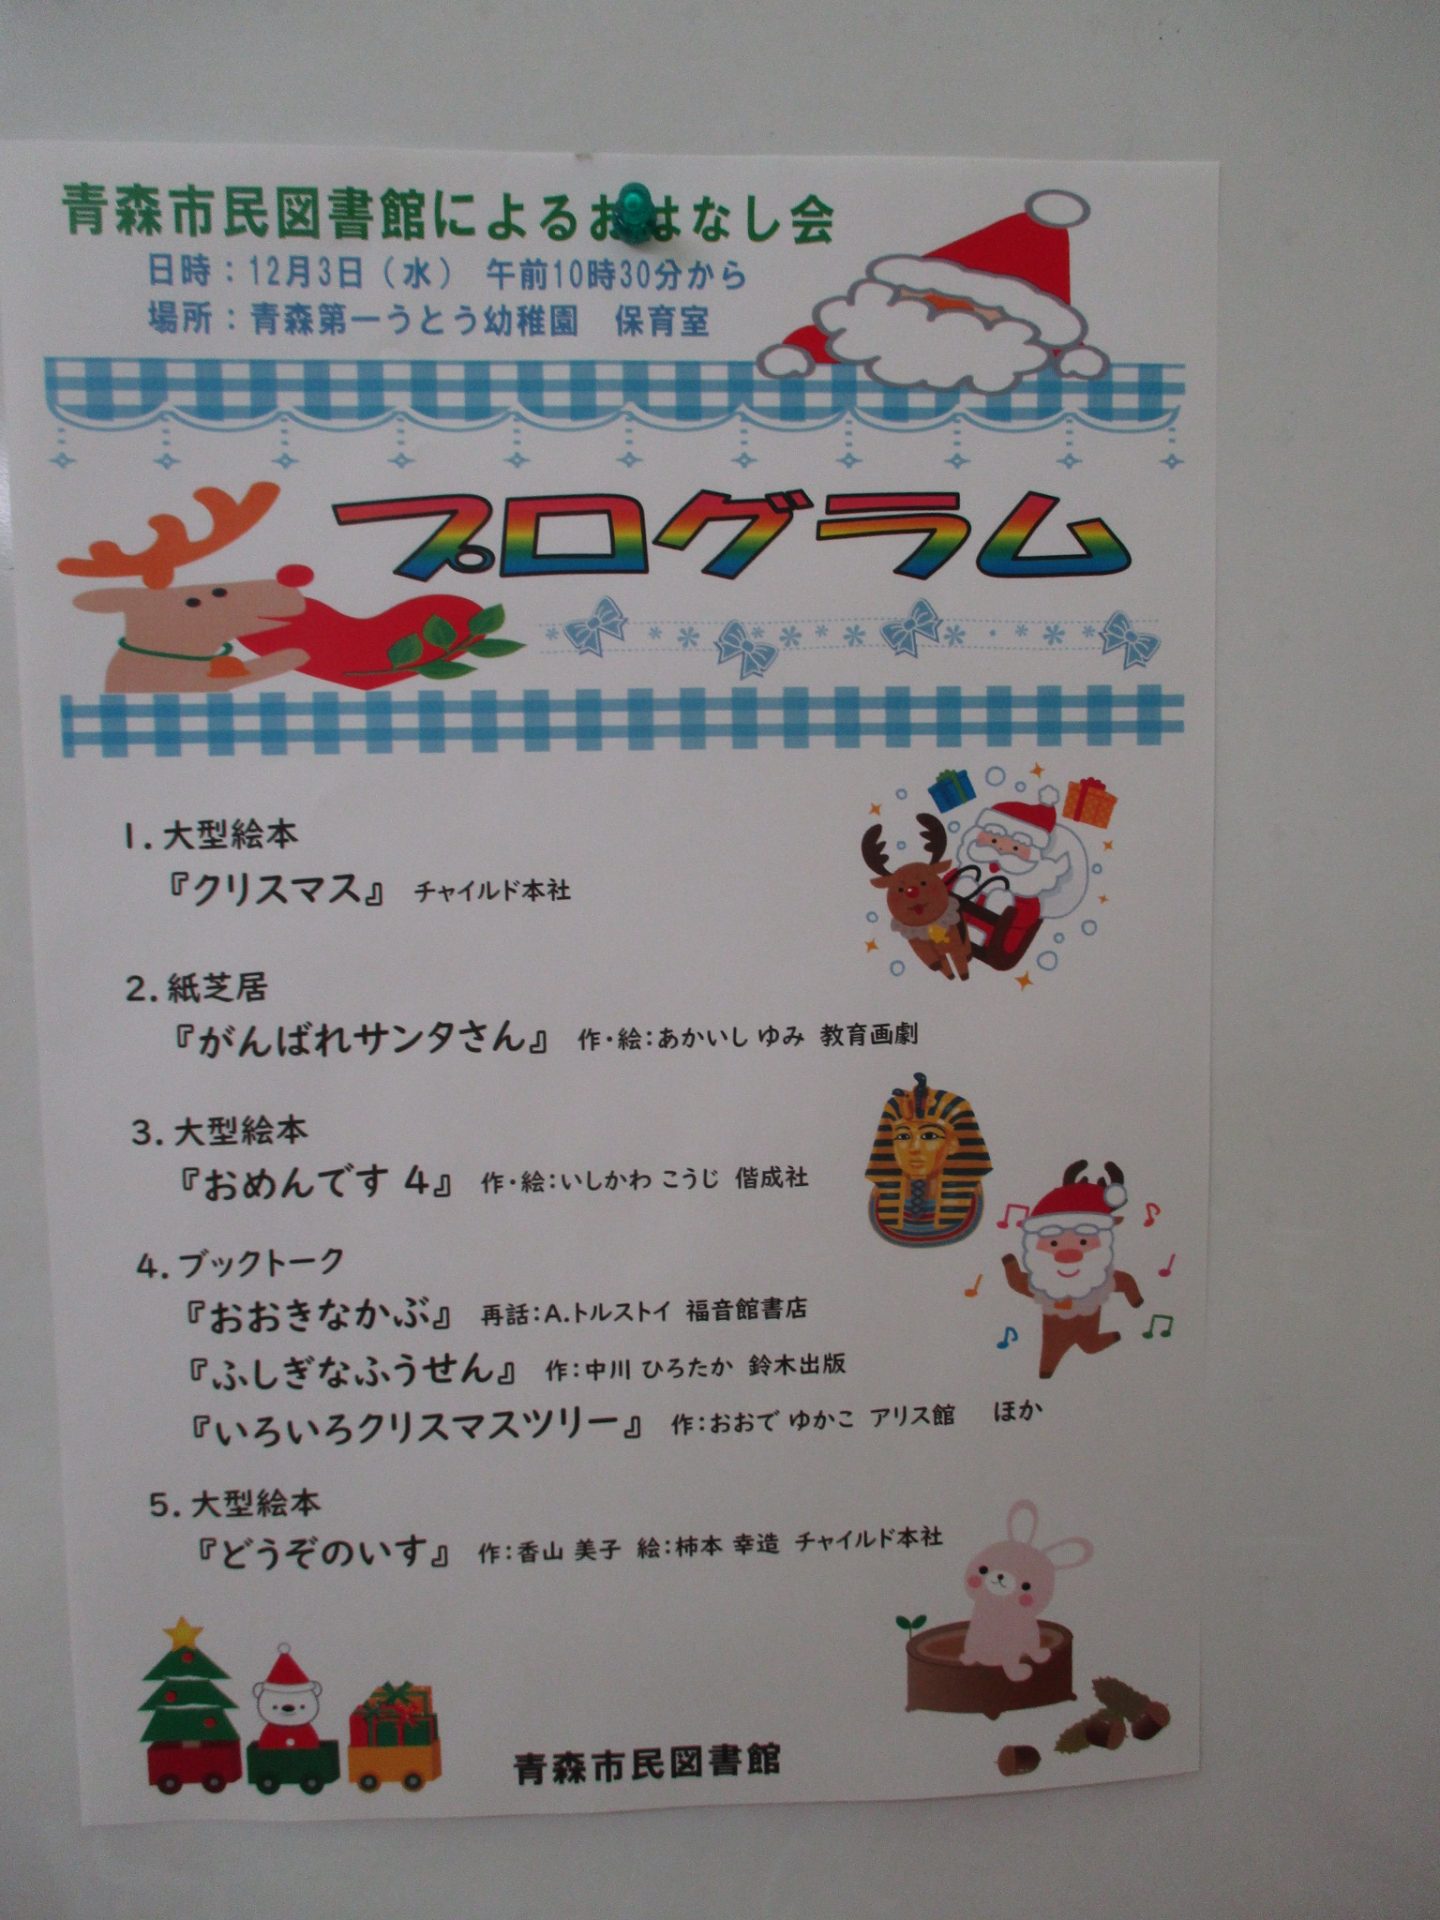 青森市民図書館によるおはなし会
日時：12月3日（水） 午前10時30分から
場所：青森第一うとう幼稚園 保育室
プログラム
1．大型絵本
『クリスマス』 チャイルド本社
2．紙芝居
『がんばれサンタさん』 作・絵：あかいし ゆみ 教育画劇
3．大型絵本
『おめんです 4』 作・絵：いしかわ こうじ 偕成社
4．ブックトーク
『おおきなかぶ』 再話：A.トルストイ 福音館書店
『ふしぎなふうせん』 作：中川 ひろたか 鈴木出版
『いろいろクリスマスツリー』 作：おおで ゆかこ アリス館 ほか
5．大型絵本
『どうぞのいす』 作：香山 美子 絵：柿本 幸造 チャイルド本社
青森市民図書館